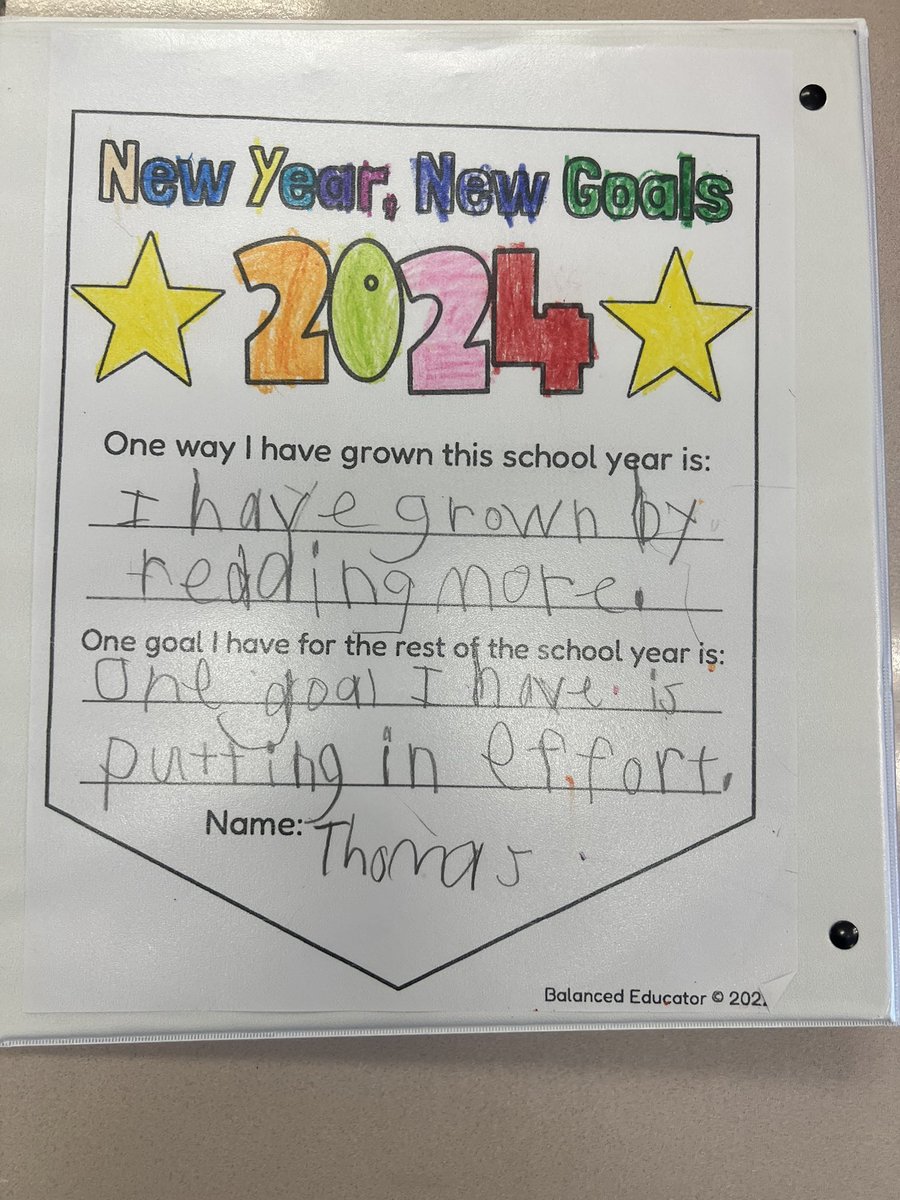 New Year, New Goals
2024
One way I have grown this school year is:
I have grown by
reading more.
One goal I have for the rest of the school year is:
One goal I have is
putting in effort.
Name: Thomas
Balanced Educator ©